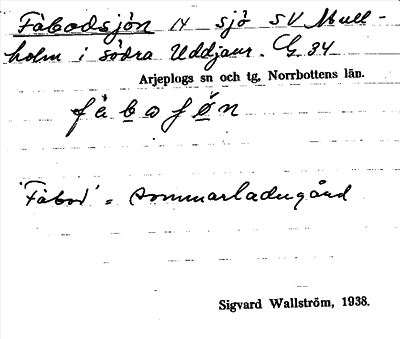 Fäbodsjön N sjö SV Mull-
holm i södra Uddjaur. G 34
Arjeplogs sn och tg, Norrbottens län.
'Fäbod' = sommarladugård
Sigvard Wallström, 1938.